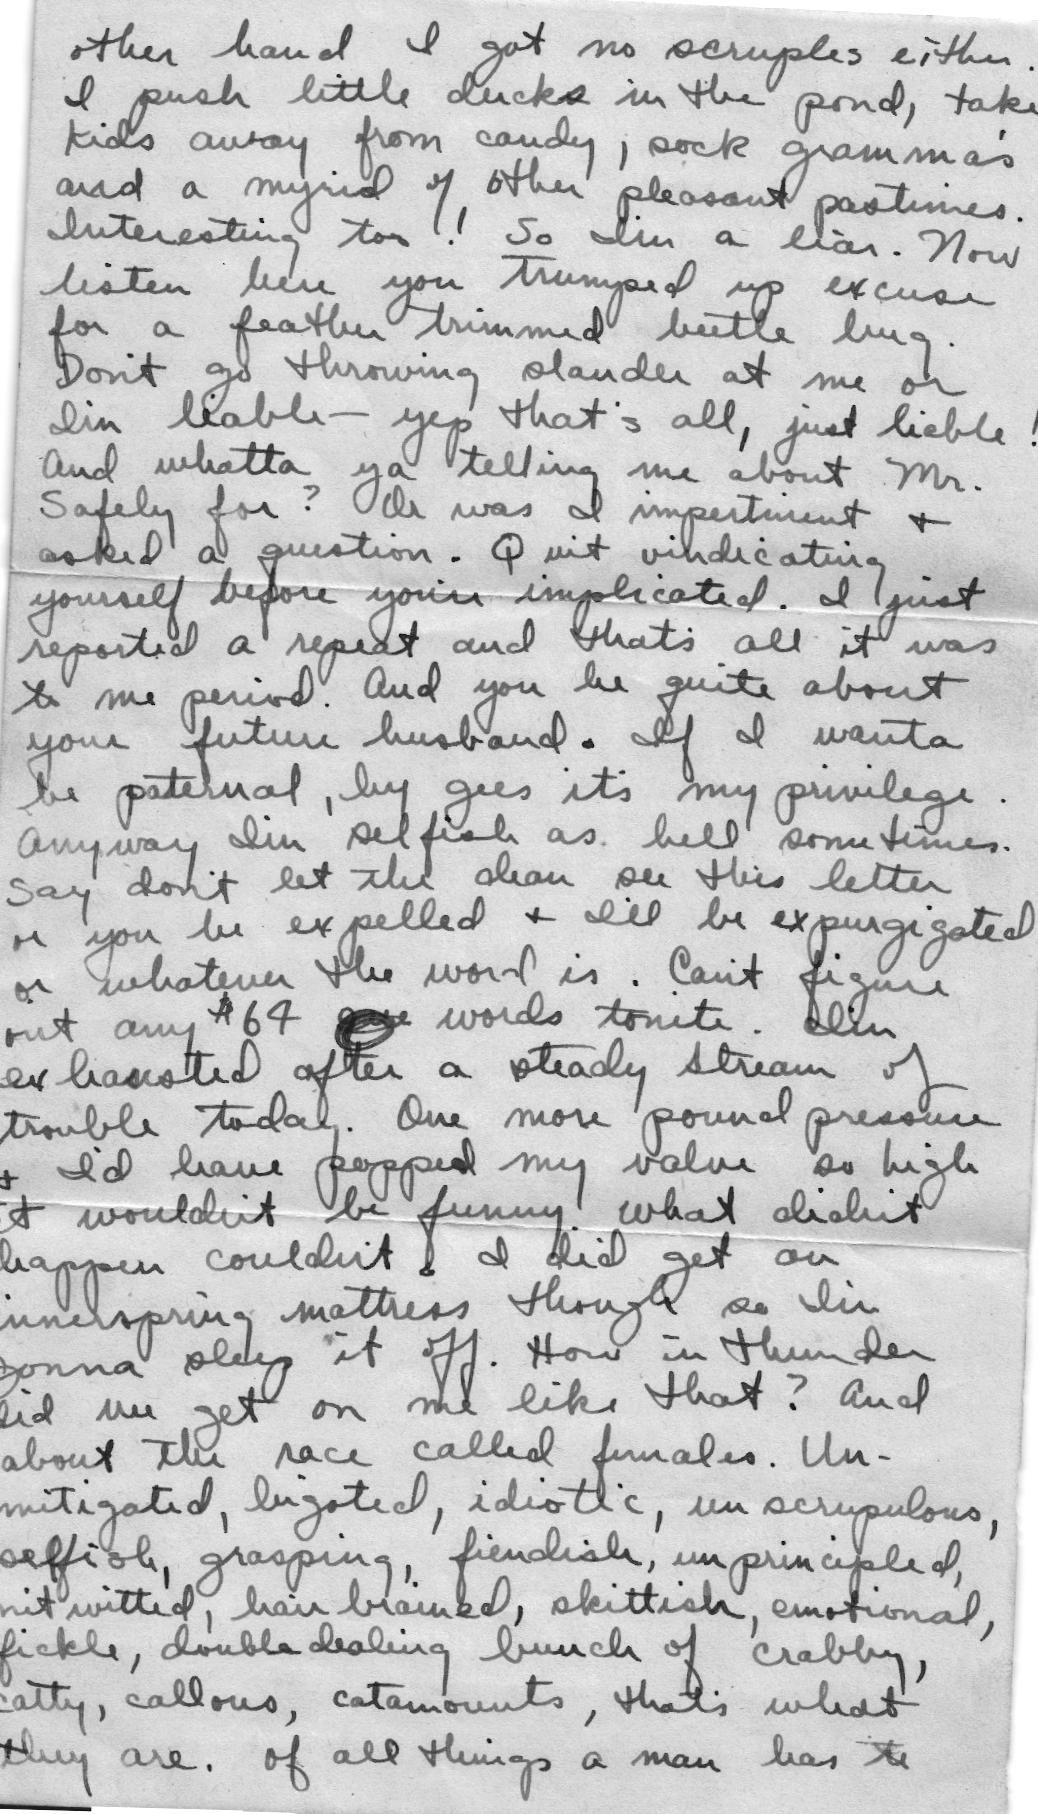 other hand I got no scruples either.
I push little ducks in the pond, take
kids away from candy, sock gramma's
and a myrid of other pleasant pastimes.
Interesting too! So I'm a liar. Now
listen here you trumped up excuse
for a feather trimmed beetle bug.
Don't go throwing slander at me or
I'm liable — yep that's all, just liable!
And whatta ya telling me about Mr.
Safely for? Or was I impertinent +
asked a question. Quit vindicating
yourself before you're implicated. I just
reported a repeat and that's all it was
to me period. And you be quite about
your future husband. If I wanta
be paternal, by gees it's my privilege.
Anyway I'm selfish as hell sometimes.
Say don't let the dean see this letter
or you be expelled + I'll be expurgigated
or whatever the word is. Can't figure
out any $64 words tonite. I'm
exhausted after a steady stream of
trouble today. One more pound pressure
+ I'd have popped my valve so high
it wouldn't be funny. What didn't
happen couldn't. I did get an
innerspring mattress though so I'm
gonna sleep it off. How in thunder
did we get on me like that? And
about the race called females. Un-
mitigated, bigoted, idiotic, unscrupulous,
selfish, grasping, fiendish, unprincipled,
nit witted, hair brained, skittish, emotional,
fickle, double dealing bunch of crabby,
catty, callous, catamounts, that's what
they are. Of all things a man has to